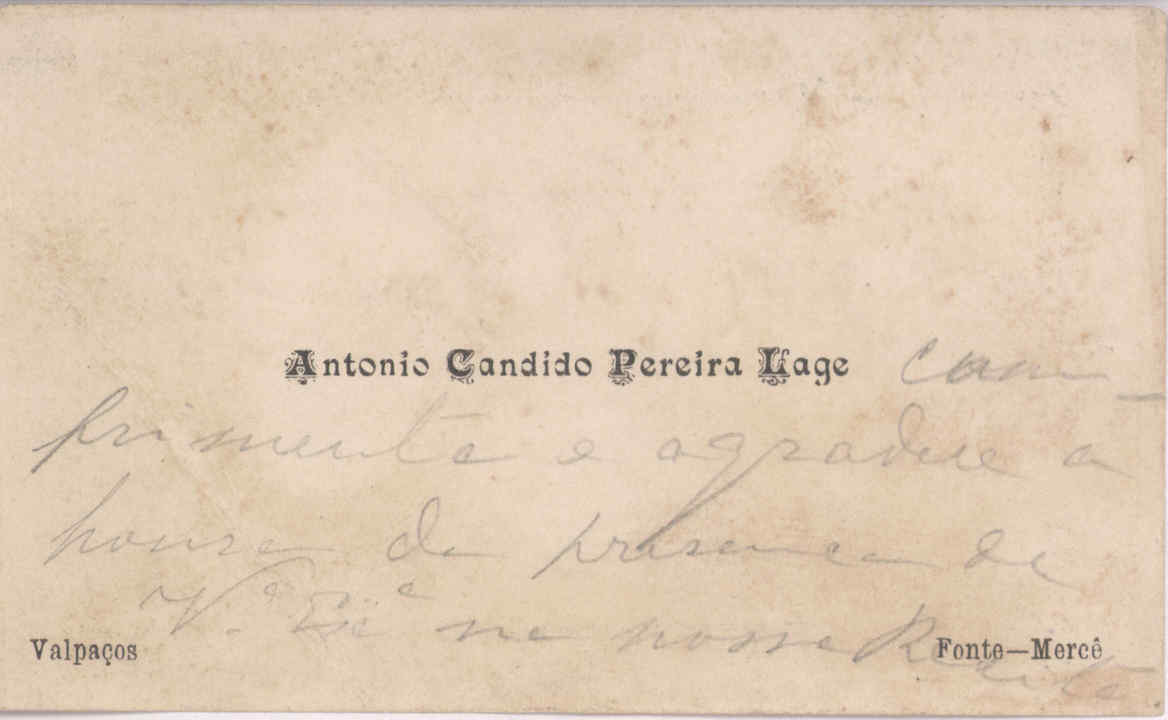 Antonio Candido Pereira Lage com-
primenta e agradece a
honra da presença de
V.ª Exª na nossa
Valpaços
Fonte—Mercê